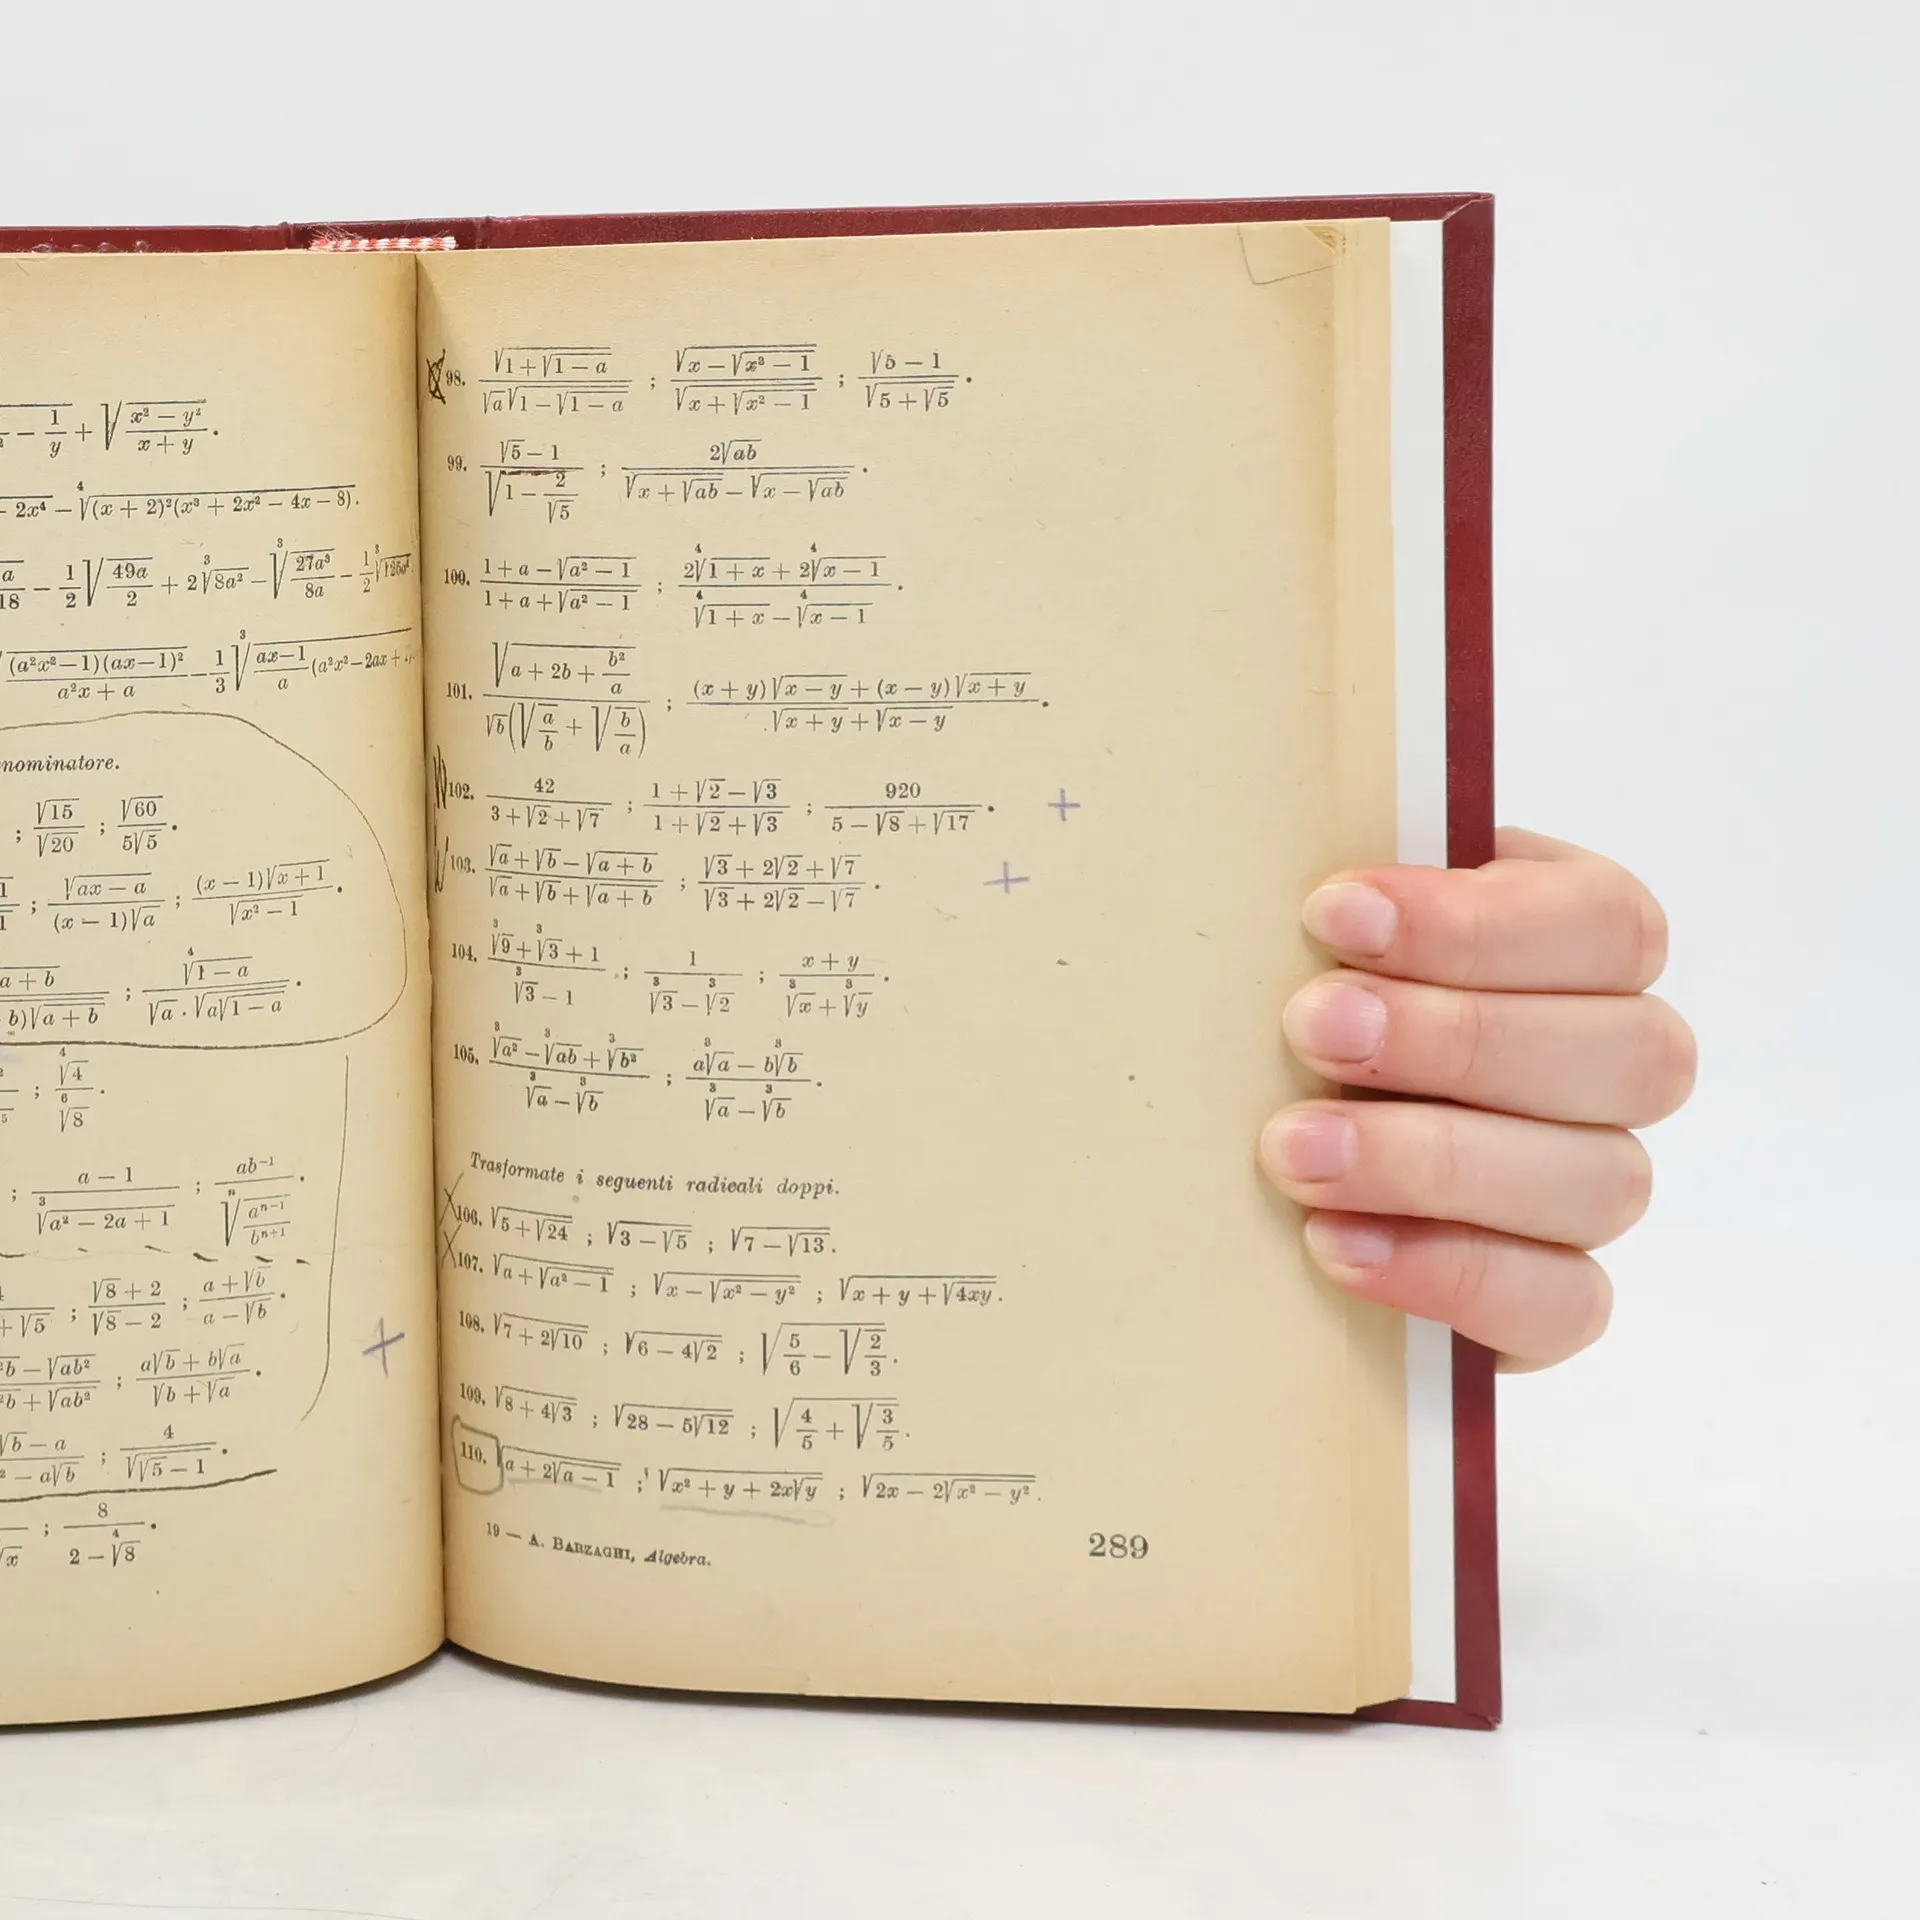 − 1/y + √((x² − y²)/(x + y)).
− 2x⁴ − ⁴√((x + 2)²(x³ + 2x² − 4x − 8)).
− 1/2 √(49a/2) + 2 ³√(8a²) − ³√(27a³/8a) − 1/2
(a²x²−1)(ax−1)²/(a²x + a) − 1/3 ³√((ax−1)/a (a²x²−2ax +
; √15/√20 ; √60/(5√5).
; √(ax − a)/((x − 1)√a) ; (x − 1)√(x + 1)/√(x² − 1).
; ⁴√(1 − a)/(√a · √(a√(1 − a))).
; ⁴√4/⁶√8.
; (a − 1)/³√(a² − 2a + 1) ; ab⁻¹/ⁿ√(aⁿ⁻¹/bⁿ⁺¹).
; (√8 + 2)/(√8 − 2) ; (a + √b)/(a − √b).
; (a√b + b√a)/(√b + √a). +
; 4/√(√5 − 1).
; 8/(2 − ⁴√8).
98. √(1 + √(1 − a))/(√a √(1 − √(1 − a))) ; √(x − √(x² − 1))/√(x + √(x² − 1)) ; (√5 − 1)/√(5 + √5).
99. (√5 − 1)/√(1 − 2/√5) ; 2√(ab)/(√(x + √(ab)) − √(x − √(ab))).
100. (1 + a − √(a² − 1))/(1 + a + √(a² − 1)) ; (2 ⁴√(1 + x) + 2 ⁴√(x − 1))/(⁴√(1 + x) − ⁴√(x − 1)).
101. √(a + 2b + b²/a)/(√b(√(a/b) + √(b/a))) ; ((x + y)√(x − y) + (x − y)√(x + y))/(√(x + y) + √(x − y)).
102. 42/(3 + √2 + √7) ; (1 + √2 − √3)/(1 + √2 + √3) ; 920/(5 − √8 + √17). +
103. (√a + √b − √(a + b))/(√a + √b + √(a + b)) ; (√3 + 2√2 + √7)/(√3 + 2√2 − √7). +
104. (³√9 + ³√3 + 1)/(³√3 − 1) ; 1/(³√3 − ³√2) ; (x + y)/(³√x + ³√y).
105. (³√a² − ³√ab + ³√b²)/(³√a − ³√b) ; (a ³√a − b ³√b)/(³√a − ³√b).
Trasformate i seguenti radicali doppi.
106. √(5 + √24) ; √(3 − √5) ; √(7 − √13).
107. √(a + √(a² − 1)) ; √(x − √(x² − y²)) ; √(x + y + √(4xy)).
108. √(7 + 2√10) ; √(6 − 4√2) ; √(5/6 − √(2/3)).
109. √(8 + 4√3) ; √(28 − 5√12) ; √(4/5 + √(3/5)).
110. √(a + 2√(a − 1)) ; √(x² + y + 2x√y) ; √(2x − 2√(x² − y²)).
19 — A. BARZAGHI, Algebra.
289
nominatore.